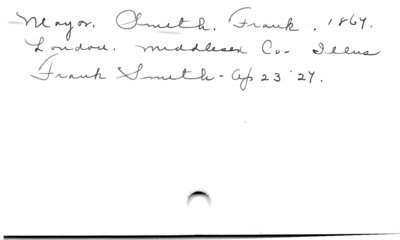 Mayor. Smith, Frank. 1867.
London. Middlesex Co- Illus
Frank Smith - Ap 23 '27.